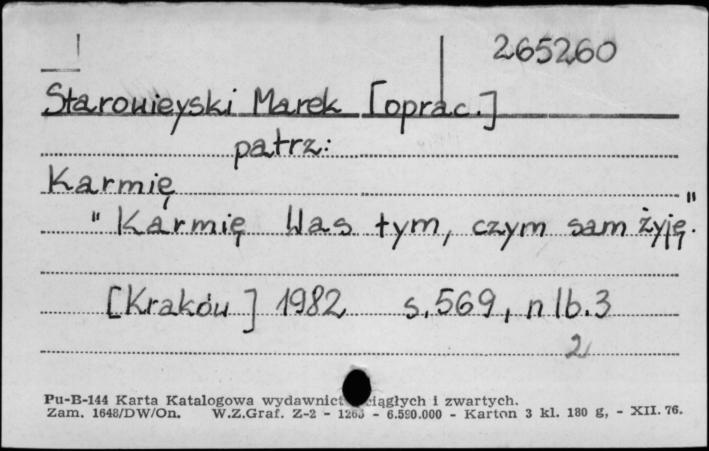 265260
Starowieyski Marek [oprac.]
patrz:
Karmię
"Karmię Was tym, czym sam żyję".
[Kraków] 1982 s. 569, nlb. 3
2
Pu-B-144 Karta Katalogowa wydawnict ciągłych i zwartych.
Zam. 1648/DW/On. W.Z.Graf. Z-2 - - 6.590.000 - Karton 3 kl. 180 g, - XII. 76.